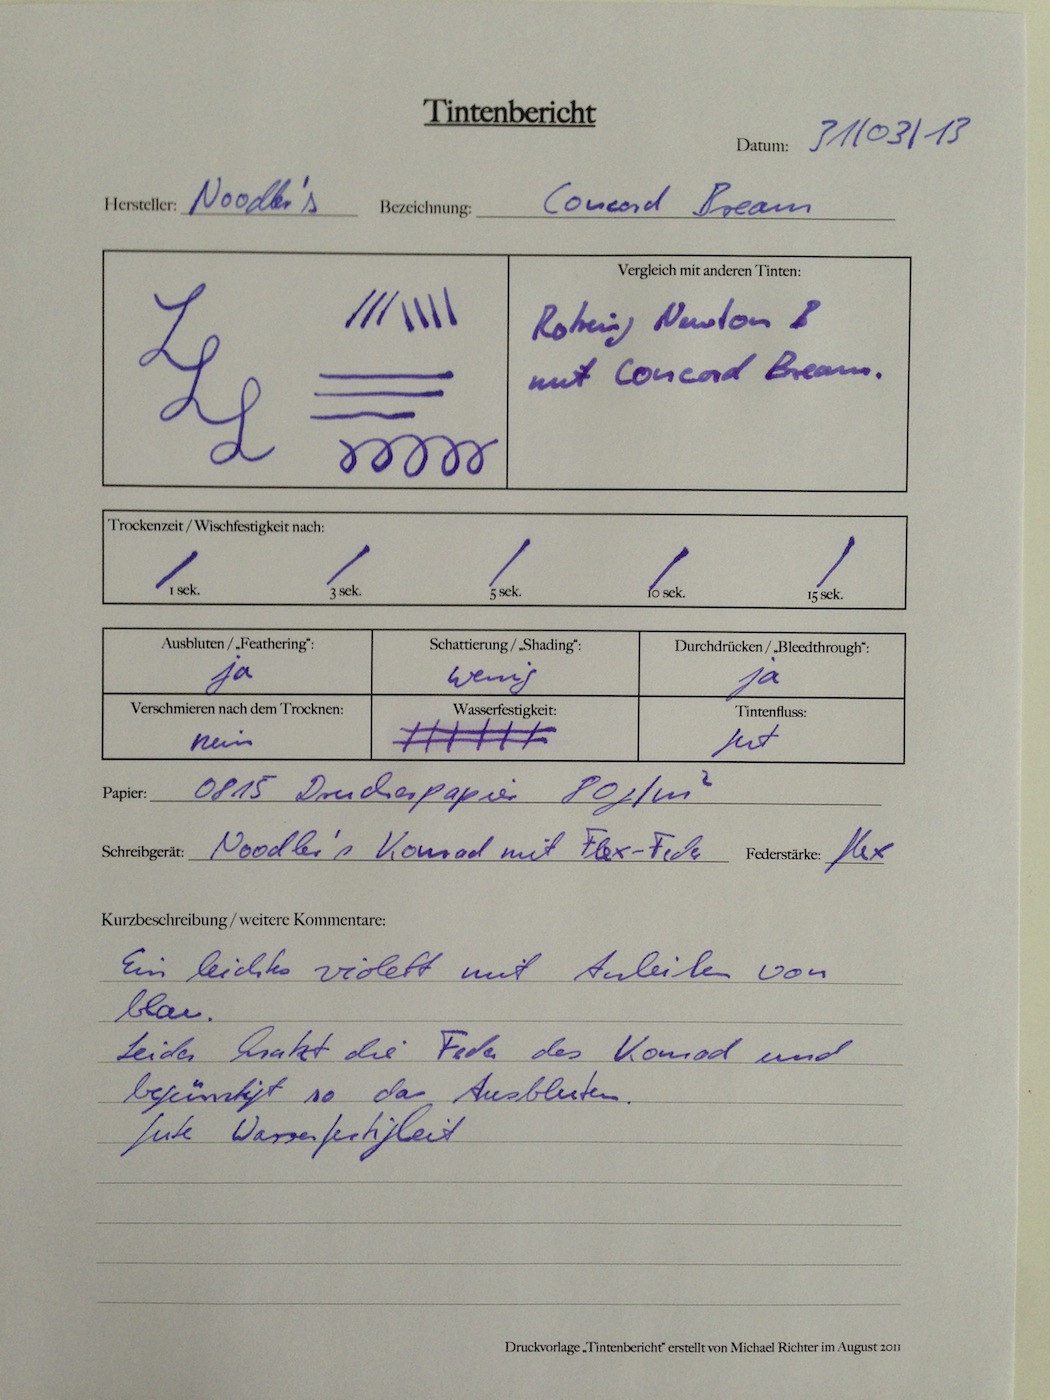 Tintenbericht
Datum: 31/03/13
Hersteller: Noodler's Bezeichnung: Concord Bream
Vergleich mit anderen Tinten:
Rotring Newton B
mit Concord Bream.
Trockenzeit / Wischfestigkeit nach:
1 sek. 3 sek. 5 sek. 10 sek. 15 sek.
Ausbluten / „Feathering“: Schattierung / „Shading“: Durchdrücken / „Bleedthrough“:
ja wenig ja
Verschmieren nach dem Trocknen: Wasserfestigkeit: Tintenfluss:
nein gut
Papier: 0815 Druckerpapier 80g/m²
Schreibgerät: Noodler's Konrad mit Flex-Feder Federstärke: flex
Kurzbeschreibung / weitere Kommentare:
Ein leichtes violett mit Anteilen von
blau.
Leider kratzt die Feder des Konrad und
begünstigt so das Ausbluten.
gute Wasserfestigkeit
Druckvorlage „Tintenbericht“ erstellt von Michael Richter im August 2011